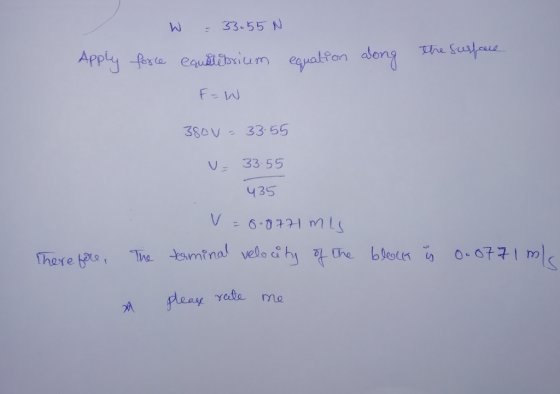 W = 33.55 N
Apply force equilibrium equation along the surface
F = W
380V = 33.55
V = 33.55
435
V = 0.0771 m/s
Therefore, The terminal velocity of the block is 0.0771 m/s
* please rate me